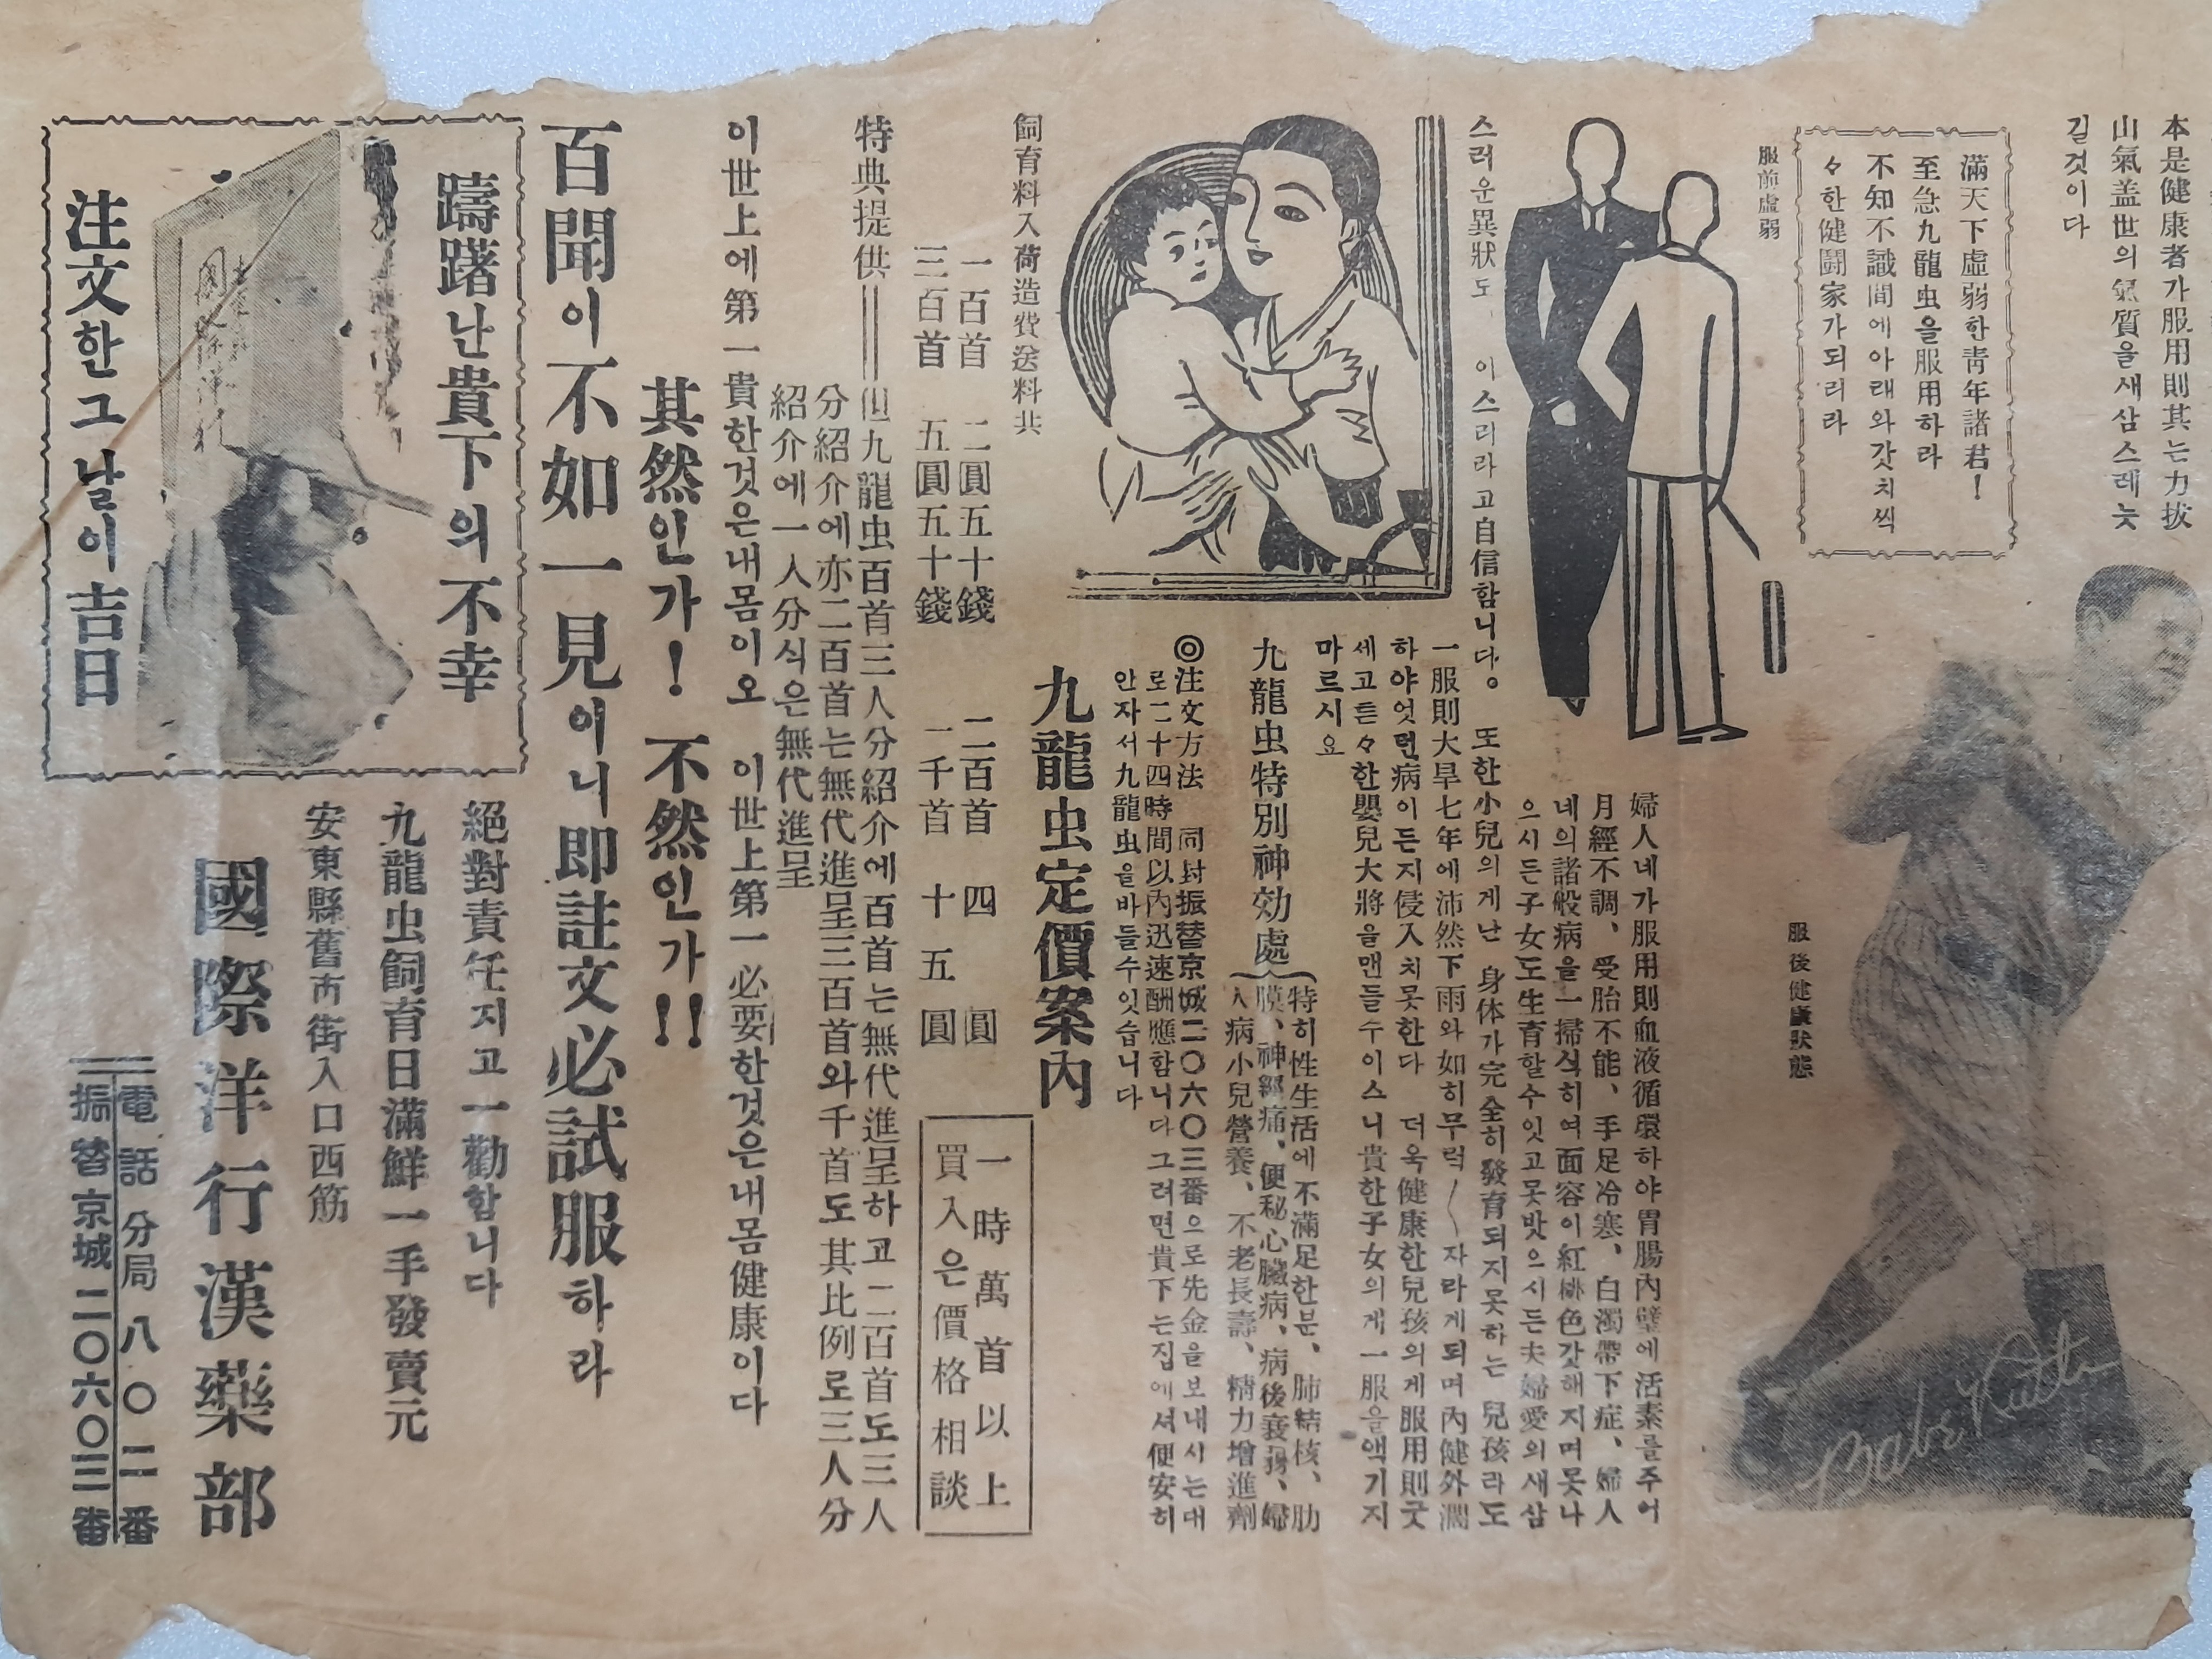 本是健康者가服用則其는力拔
山氣盖世의氣質을새삼스레늣
길것이다
滿天下虛弱한靑年諸君!
至急九龍虫을服用하라
不知不識間에아래와갓치씩
々한健鬪家가되리라
服前虛弱
服後健康狀態
Babe Ruth
婦人네가服用則血液循環하야胃腸內壁에活素를주어
月經不調、受胎不能、手足冷寒、白濁帶下症、婦人
네의諸般病을一掃식히여面容이紅桃色갓해지며못나
으시든子女도生育할수잇고못밧으시든夫婦愛의새삼
스러운異狀도 이스리라고自信함니다。 또한小兒의게난 身体가完全히發育되지못하는 兒孩라도
一服則大旱七年에沛然下雨와如히무럭〱자라게되며內健外潤
하야엇던病이든지侵入치못한다 더욱健康한兒孩의게服用則굿
세고든々한嬰兒大將을맨들수이스니貴한子女의게一服을액기지
마르시요
九龍虫特別神効處
特히性生活에不滿足한분、肺結核、肋
膜、神經痛、便秘心臟病、病後衰弱、婦
人病小兒營養、不老長壽、精力增進劑
◎注文方法 同封振替京城二〇六〇三番으로先金을보내시는대
로二十四時間以內迅速酬應함니다그러면貴下는집에서便安히
안자서九龍虫을바들수잇습니다
九龍虫定價案內
飼育料入荷造費送料共
一百首 二圓五十錢 二百首 四圓
三百首 五圓五十錢 一千首 十五圓
一時萬首以上
買入은價格相談
特典提供=但九龍虫百首三人分紹介에百首는無代進呈하고二百首도三人
分紹介에亦二百首는無代進呈三百首와千首도其比例로三人分
紹介에一人分식은無代進呈
이世上에第一貴한것은내몸이오 이世上第一必要한것은내몸健康이다
其然인가! 不然인가!!
百聞이不如一見이니卽註文必試服하라
躊躇난貴下의不幸
國際洋行
注文한그날이吉日
絕對責任지고一勸함니다
九龍虫飼育日滿鮮一手發賣元
安東縣舊市街入口西筋
國際洋行漢藥部
電話分局八〇二番
振替京城二〇六〇三番